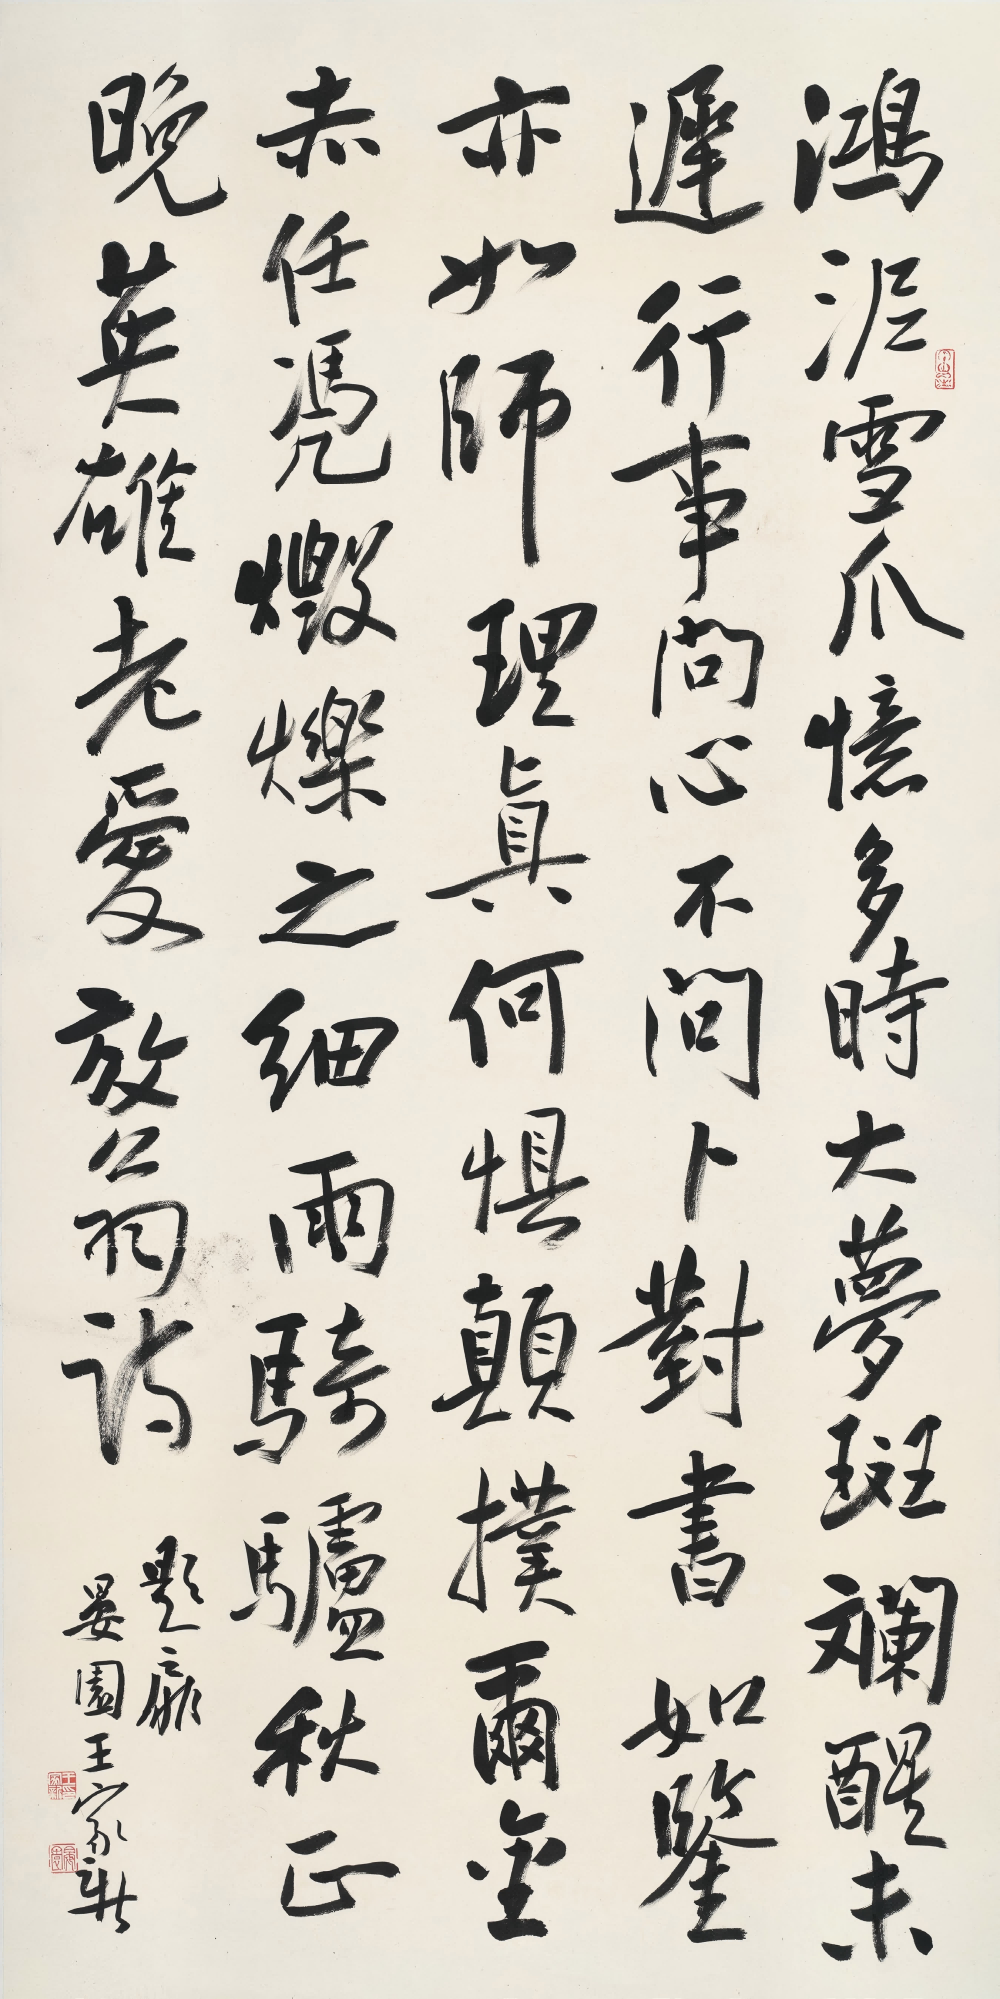 鴻泥雪爪憶多時大夢斑斕醒未
遲行事問心不問卜對書如鑒
亦如師理真何懼顛撲爾金
赤任憑燬爍之細雨騎驢秋正
晚英雄老愛放翁詩
題齋
晏園王家新